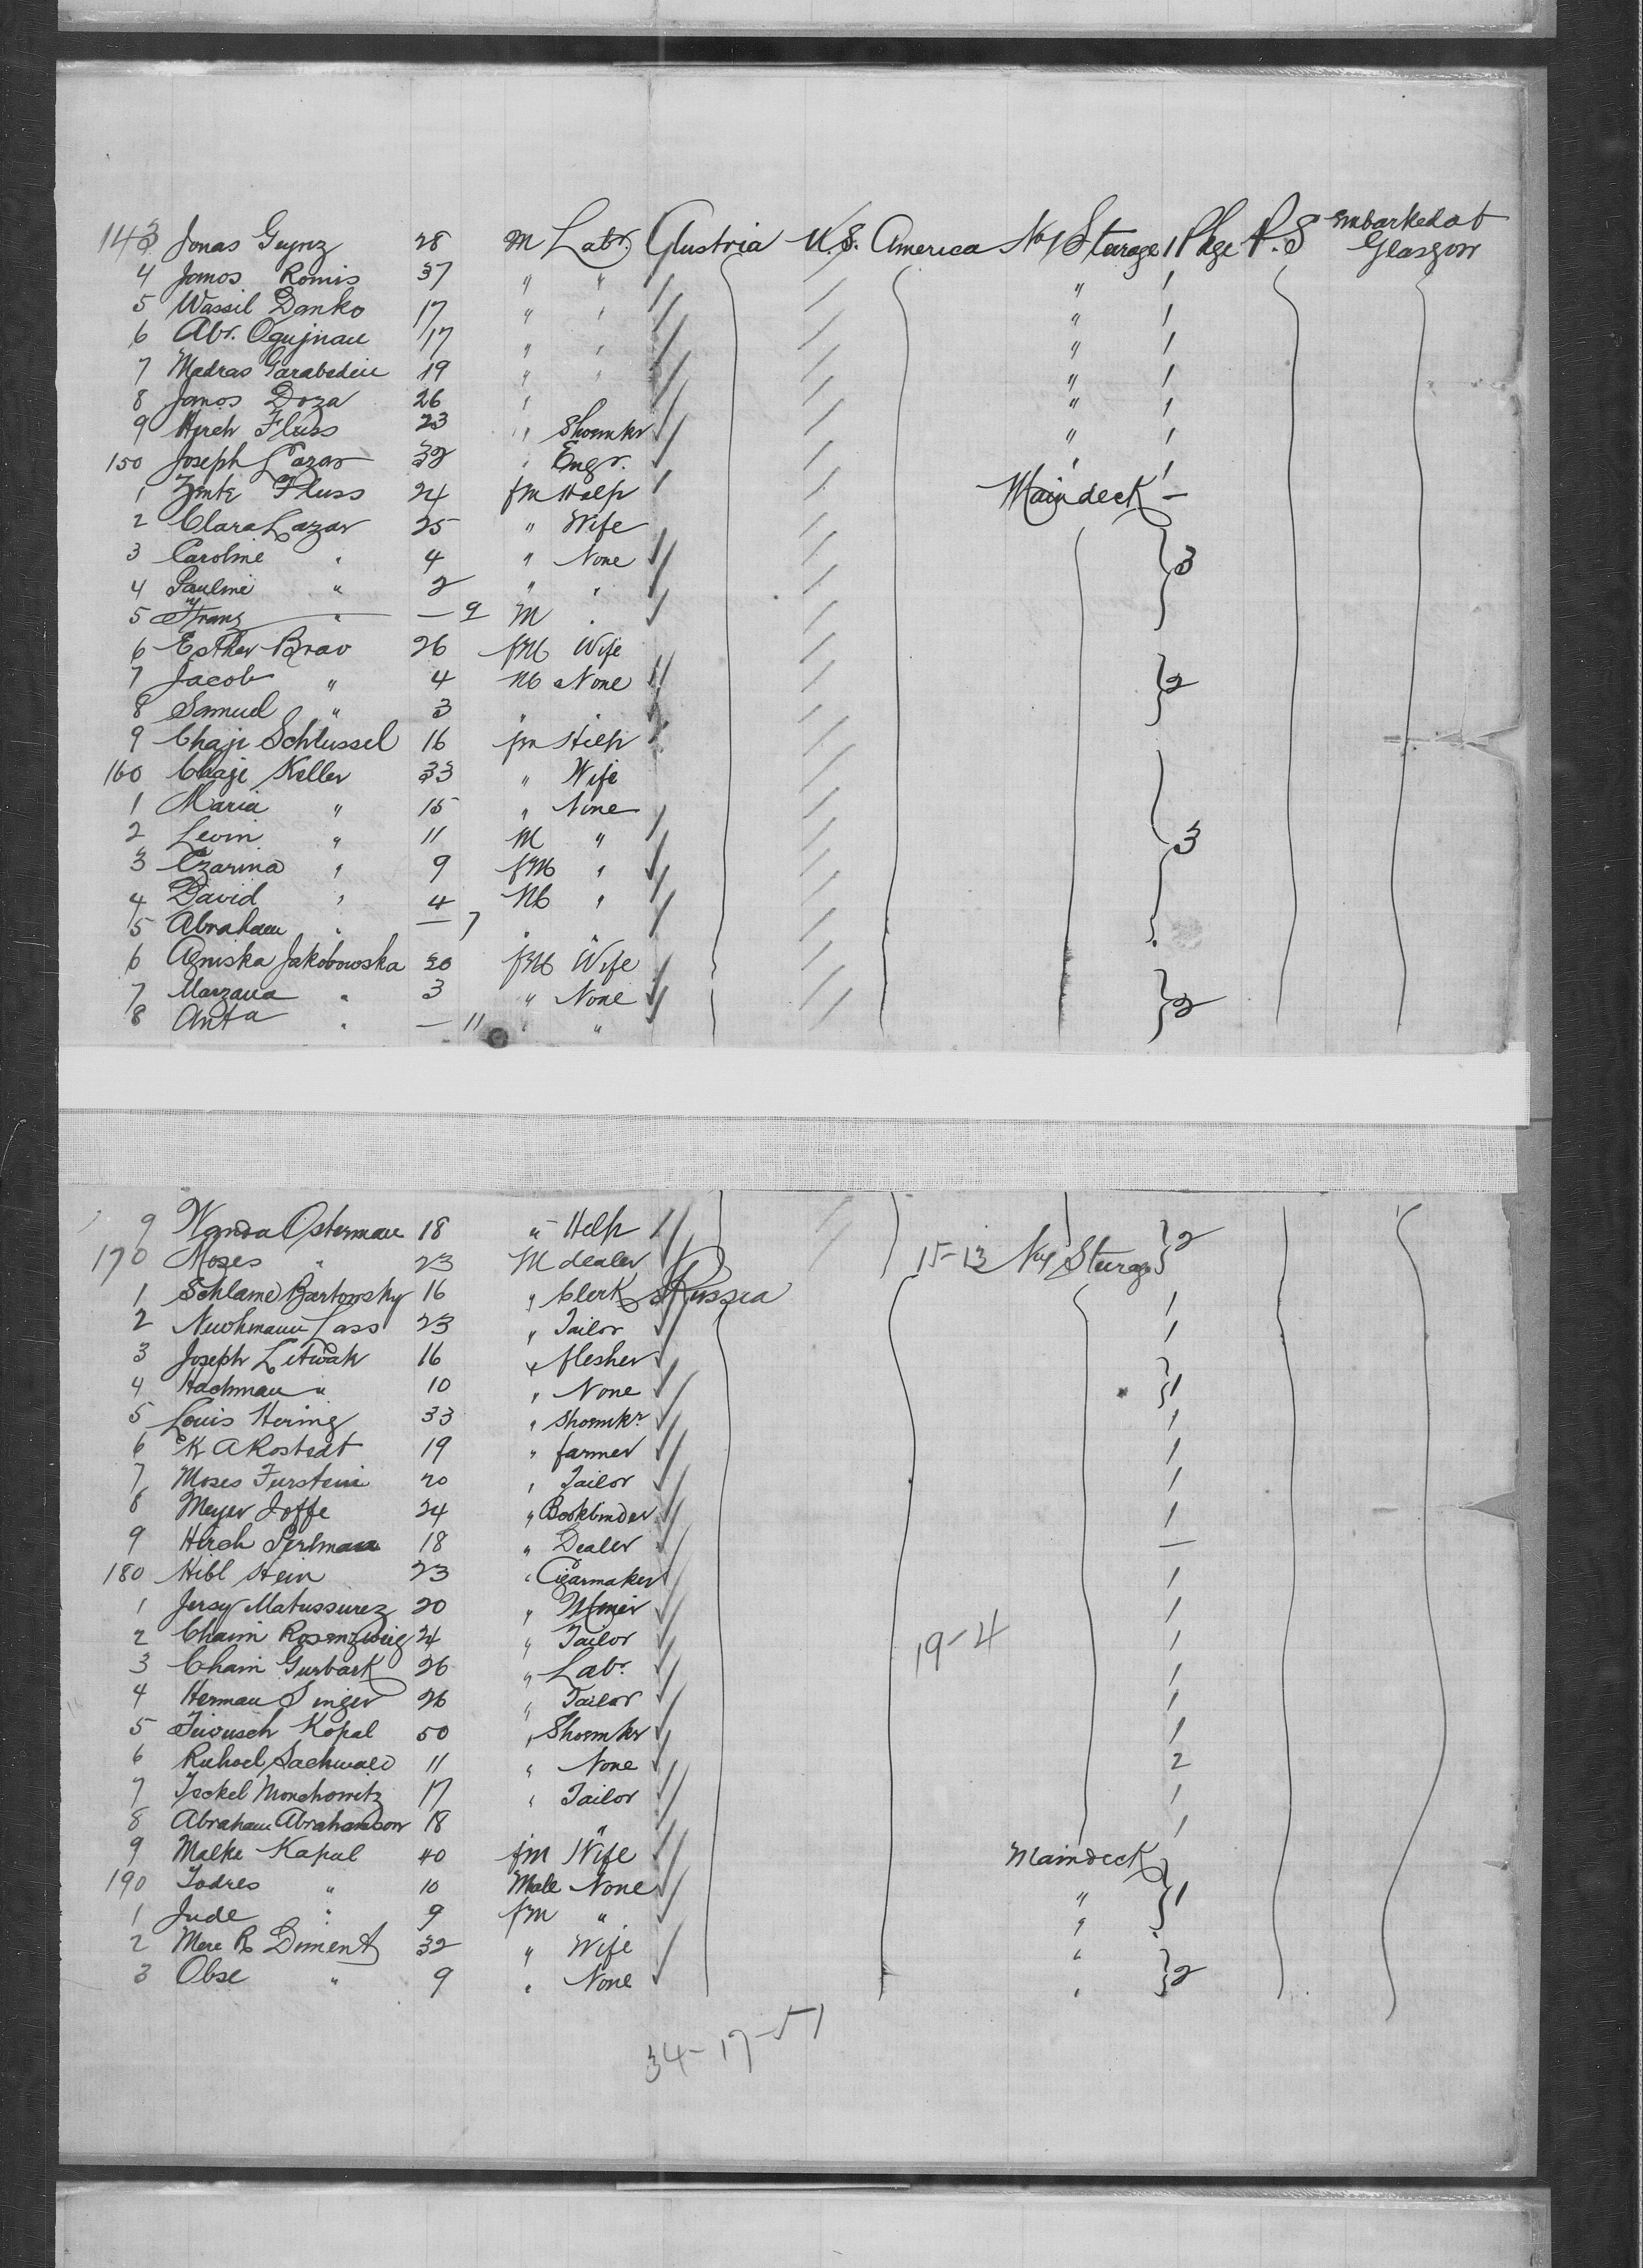 143 Jonas Guynz 28 M Labr. Austria U.S. America No 1 Sturage 1 Pkge P.S Embarked at Glasgow
4 Jamos Romis 37 " " " 1
5 Wassil Danko 17 " " " 1
6 Abr. Ogujnau 17 " " " 1
7 Madras Garabedeu 19 " " " 1
8 Jamos Doza 26 " " 1
9 Hirch Fluss 23 " Shoemkr " 1
150 Joseph Lazar 32 " Engr. " 1
1 Fluss 24 fm Help Maindeck –
2 Clara Lazar 25 " Wife
3 Caroline " 4 " None 3
4 Pauline " 2 " "
5 Franz " — 9 M "
6 Esther Brav 26 fm Wife
7 Jacob " 4 M None 2
8 Samuel " 3 " "
9 Chaje Schlussel 16 fm Help
160 Chaje Keller 33 " Wife
1 Maria " 15 " None
2 Levin " 11 M "
3 Czarina " 9 fm " 3
4 David " 4 M "
5 Abraham " — 7 " "
6 Agniska Jakobowska 20 fm Wife
7 Marzana " 3 " None 2
8 Anta " — 11 " "
9 Wanda Osterman 18 " Help 2
170 Moses " 23 M dealer 15-13 No 1 Sturage
1 Schlame Bartowsky 16 " Clerk Russia 1
2 Newhmann Lass 23 " Tailor 1
3 Joseph Litwak 16 " flesher
4 Hachman " 10 " None 1
5 Louis Hering 33 " Shoemkr 1
6 K A Rostedt 19 " farmer 1
7 Moses Furstein 20 " Tailor 1
8 Meyer Joffe 24 " Bookbinder 1
9 Hirch Perlman 18 " Dealer —
180 Hibl Stein 23 " Cigarmaker 1
1 Jersy Matussurez 20 " Miner 1
2 Chaim Rosenzweig 24 " Tailor 19-4 1
3 Chain Gurbark 26 " Labr. 1
4 Herman Singer 26 " Tailor 1
5 Kopal 50 " Shoemkr 1
6 Ruhoel Sachwald 11 " None 2
7 Jeckel Monchowitz 17 " Tailor 1
8 Abraham Abrahamson 18 " 1
9 Malke Kapul 40 fm Wife Maindeck
190 Todres " 10 Male None " 1
1 Jude " 9 fm " "
2 Mere R Diment 32 " Wife "
3 Obse " 9 " None " 2
34-17-51